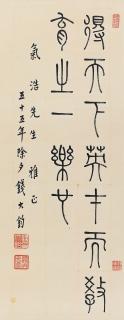 得天下英才而教
育之一樂也
氣浩先生雅正
五十五年除夕錢大鈞